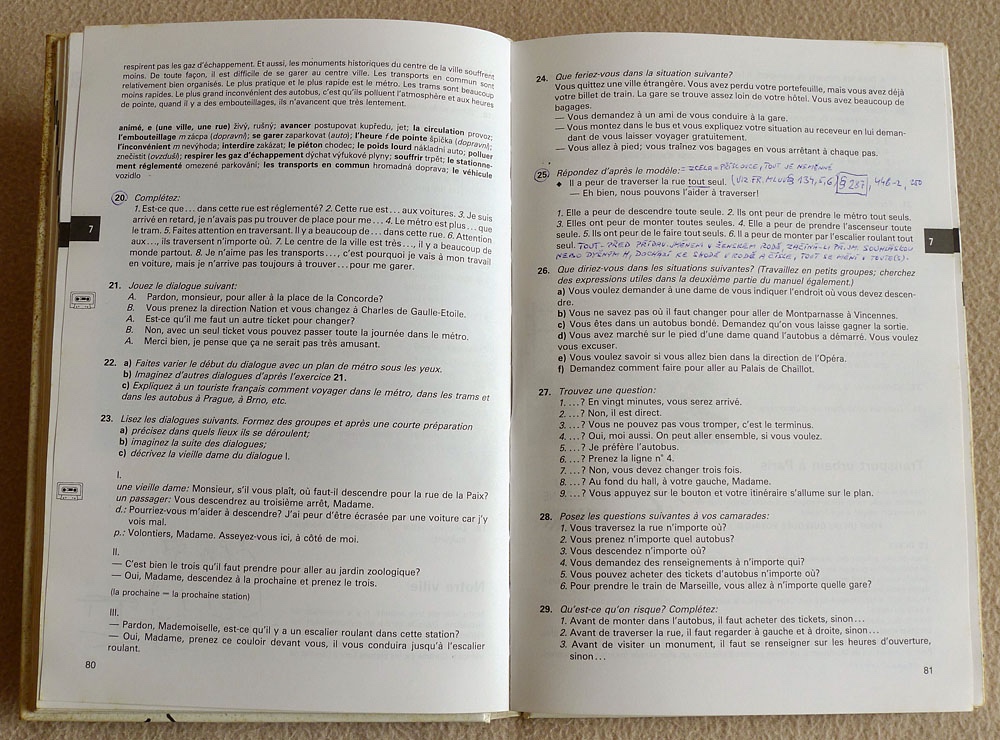 respirent pas les gaz d'échappement. Et aussi, les monuments historiques du centre de la ville souffrent
moins. De toute façon, il est difficile de se garer au centre ville. Les transports en commun sont
relativement bien organisés. Le plus pratique et le plus rapide est le métro. Les trams sont beaucoup
moins rapides. Le plus grand inconvénient des autobus, c'est qu'ils polluent l'atmosphère et aux heures
de pointe, quand il y a des embouteillages, ils n'avancent que très lentement.
animé, e (une ville, une rue) živý, rušný; avancer postupovat kupředu, jet; la circulation provoz;
l'embouteillage m zácpa (dopravní); se garer zaparkovat (auto); l'heure f de pointe špička (dopravní);
l'inconvénient m nevýhoda; interdire zakázat; le piéton chodec; le poids lourd nákladní auto; polluer
znečistit (ovzduší); respirer les gaz d'échappement dýchat výfukové plyny; souffrir trpět; le stationne-
ment réglementé omezené parkování; les transports en commun hromadná doprava; le véhicule
vozidlo
20. Complétez:
1. Est-ce que... dans cette rue est réglementé? 2. Cette rue est... aux voitures. 3. Je suis
arrivé en retard, je n'avais pas pu trouver de place pour me... 4. Le métro est plus... que
le tram. 5. Faites attention en traversant. Il y a beaucoup de... dans cette rue. 6. Attention
aux..., ils traversent n'importe où. 7. Le centre de la ville est très..., il y a beaucoup de
monde partout. 8. Je n'aime pas les transports..., c'est pourquoi je vais à mon travail
en voiture, mais je n'arrive pas toujours à trouver... pour me garer.
7
21. Jouez le dialogue suivant:
A. Pardon, monsieur, pour aller à la place de la Concorde?
B. Vous prenez la direction Nation et vous changez à Charles de Gaulle-Etoile.
A. Est-ce qu'il me faut un autre ticket pour changer?
B. Non, avec un seul ticket vous pouvez passer toute la journée dans le métro.
A. Merci bien, je pense que ça ne serait pas très amusant.
22. a) Faites varier le début du dialogue avec un plan de métro sous les yeux.
b) Imaginez d'autres dialogues d'après l'exercice 21.
c) Expliquez à un touriste français comment voyager dans le métro, dans les trams et
dans les autobus à Prague, à Brno, etc.
23. Lisez les dialogues suivants. Formez des groupes et après une courte préparation
a) précisez dans quels lieux ils se déroulent;
b) imaginez la suite des dialogues;
c) décrivez la vieille dame du dialogue I.
I.
une vieille dame: Monsieur, s'il vous plaît, où faut-il descendre pour la rue de la Paix?
un passager: Vous descendrez au troisième arrêt, Madame.
d.: Pourriez-vous m'aider à descendre? J'ai peur d'être écrasée par une voiture car j'y
vois mal.
p.: Volontiers, Madame. Asseyez-vous ici, à côté de moi.
II.
— C'est bien le trois qu'il faut prendre pour aller au jardin zoologique?
— Oui, Madame, descendez à la prochaine et prenez le trois.
(la prochaine = la prochaine station)
III.
— Pardon, Mademoiselle, est-ce qu'il y a un escalier roulant dans cette station?
— Oui, Madame, prenez ce couloir devant vous, il vous conduira jusqu'à l'escalier
roulant.
80
24. Que feriez-vous dans la situation suivante?
Vous quittez une ville étrangère. Vous avez perdu votre portefeuille, mais vous avez déjà
votre billet de train. La gare se trouve assez loin de votre hôtel. Vous avez beaucoup de
bagages.
— Vous demandez à un ami de vous conduire à la gare.
— Vous montez dans le bus et vous expliquez votre situation au receveur en lui deman-
dant de vous laisser voyager gratuitement.
— Vous allez à pied; vous traînez vos bagages en vous arrêtant à chaque pas.
25. Répondez d'après le modèle: = ZCELA = PŘÍSLOVCE, TOUT JE NEMĚNNÉ
◆ Il a peur de traverser la rue tout seul. (VIZ FR. MLUV. § 134,5,6, § 287, 448-2, 250
— Eh bien, nous pouvons l'aider à traverser!
1. Elle a peur de descendre toute seule. 2. Ils ont peur de prendre le métro tout seuls.
3. Elles ont peur de monter toutes seules. 4. Elle a peur de prendre l'ascenseur toute
seule. 5. Ils ont peur de le faire tout seuls. 6. Il a peur de monter par l'escalier roulant tout
seul. TOUT - PŘED PŘÍDAV. JMÉNEM V ŽENSKÉM RODĚ, ZAČÍNÁ-LI PŘ. JM. SOUHLÁSKOU
NEBO DYŠNÝM H, DOCHÁZÍ KE SHODĚ V RODĚ A ČÍSLE, TOUT SE MĚNÍ V TOUTE(S).
7
26. Que diriez-vous dans les situations suivantes? (Travaillez en petits groupes; cherchez
des expressions utiles dans la deuxième partie du manuel également.)
a) Vous voulez demander à une dame de vous indiquer l'endroit où vous devez descen-
dre.
b) Vous ne savez pas où il faut changer pour aller de Montparnasse à Vincennes.
c) Vous êtes dans un autobus bondé. Demandez qu'on vous laisse gagner la sortie.
d) Vous avez marché sur le pied d'une dame quand l'autobus a démarré. Vous voulez
vous excuser.
e) Vous voulez savoir si vous allez bien dans la direction de l'Opéra.
f) Demandez comment faire pour aller au Palais de Chaillot.
27. Trouvez une question:
1. ...? En vingt minutes, vous serez arrivé.
2. ...? Non, il est direct.
3. ...? Vous ne pouvez pas vous tromper, c'est le terminus.
4. ...? Oui, moi aussi. On peut aller ensemble, si vous voulez.
5. ...? Je préfère l'autobus.
6. ...? Prenez la ligne n° 4.
7. ...? Non, vous devez changer trois fois.
8. ...? Au fond du hall, à votre gauche, Madame.
9. ...? Vous appuyez sur le bouton et votre itinéraire s'allume sur le plan.
28. Posez les questions suivantes à vos camarades:
1. Vous traversez la rue n'importe où?
2. Vous prenez n'importe quel autobus?
3. Vous descendez n'importe où?
4. Vous demandez des renseignements à n'importe qui?
5. Vous pouvez acheter des tickets d'autobus n'importe où?
6. Pour prendre le train de Marseille, vous allez à n'importe quelle gare?
29. Qu'est-ce qu'on risque? Complétez:
1. Avant de monter dans l'autobus, il faut acheter des tickets, sinon...
2. Avant de traverser la rue, il faut regarder à gauche et à droite, sinon...
3. Avant de visiter un monument, il faut se renseigner sur les heures d'ouverture,
sinon...
81